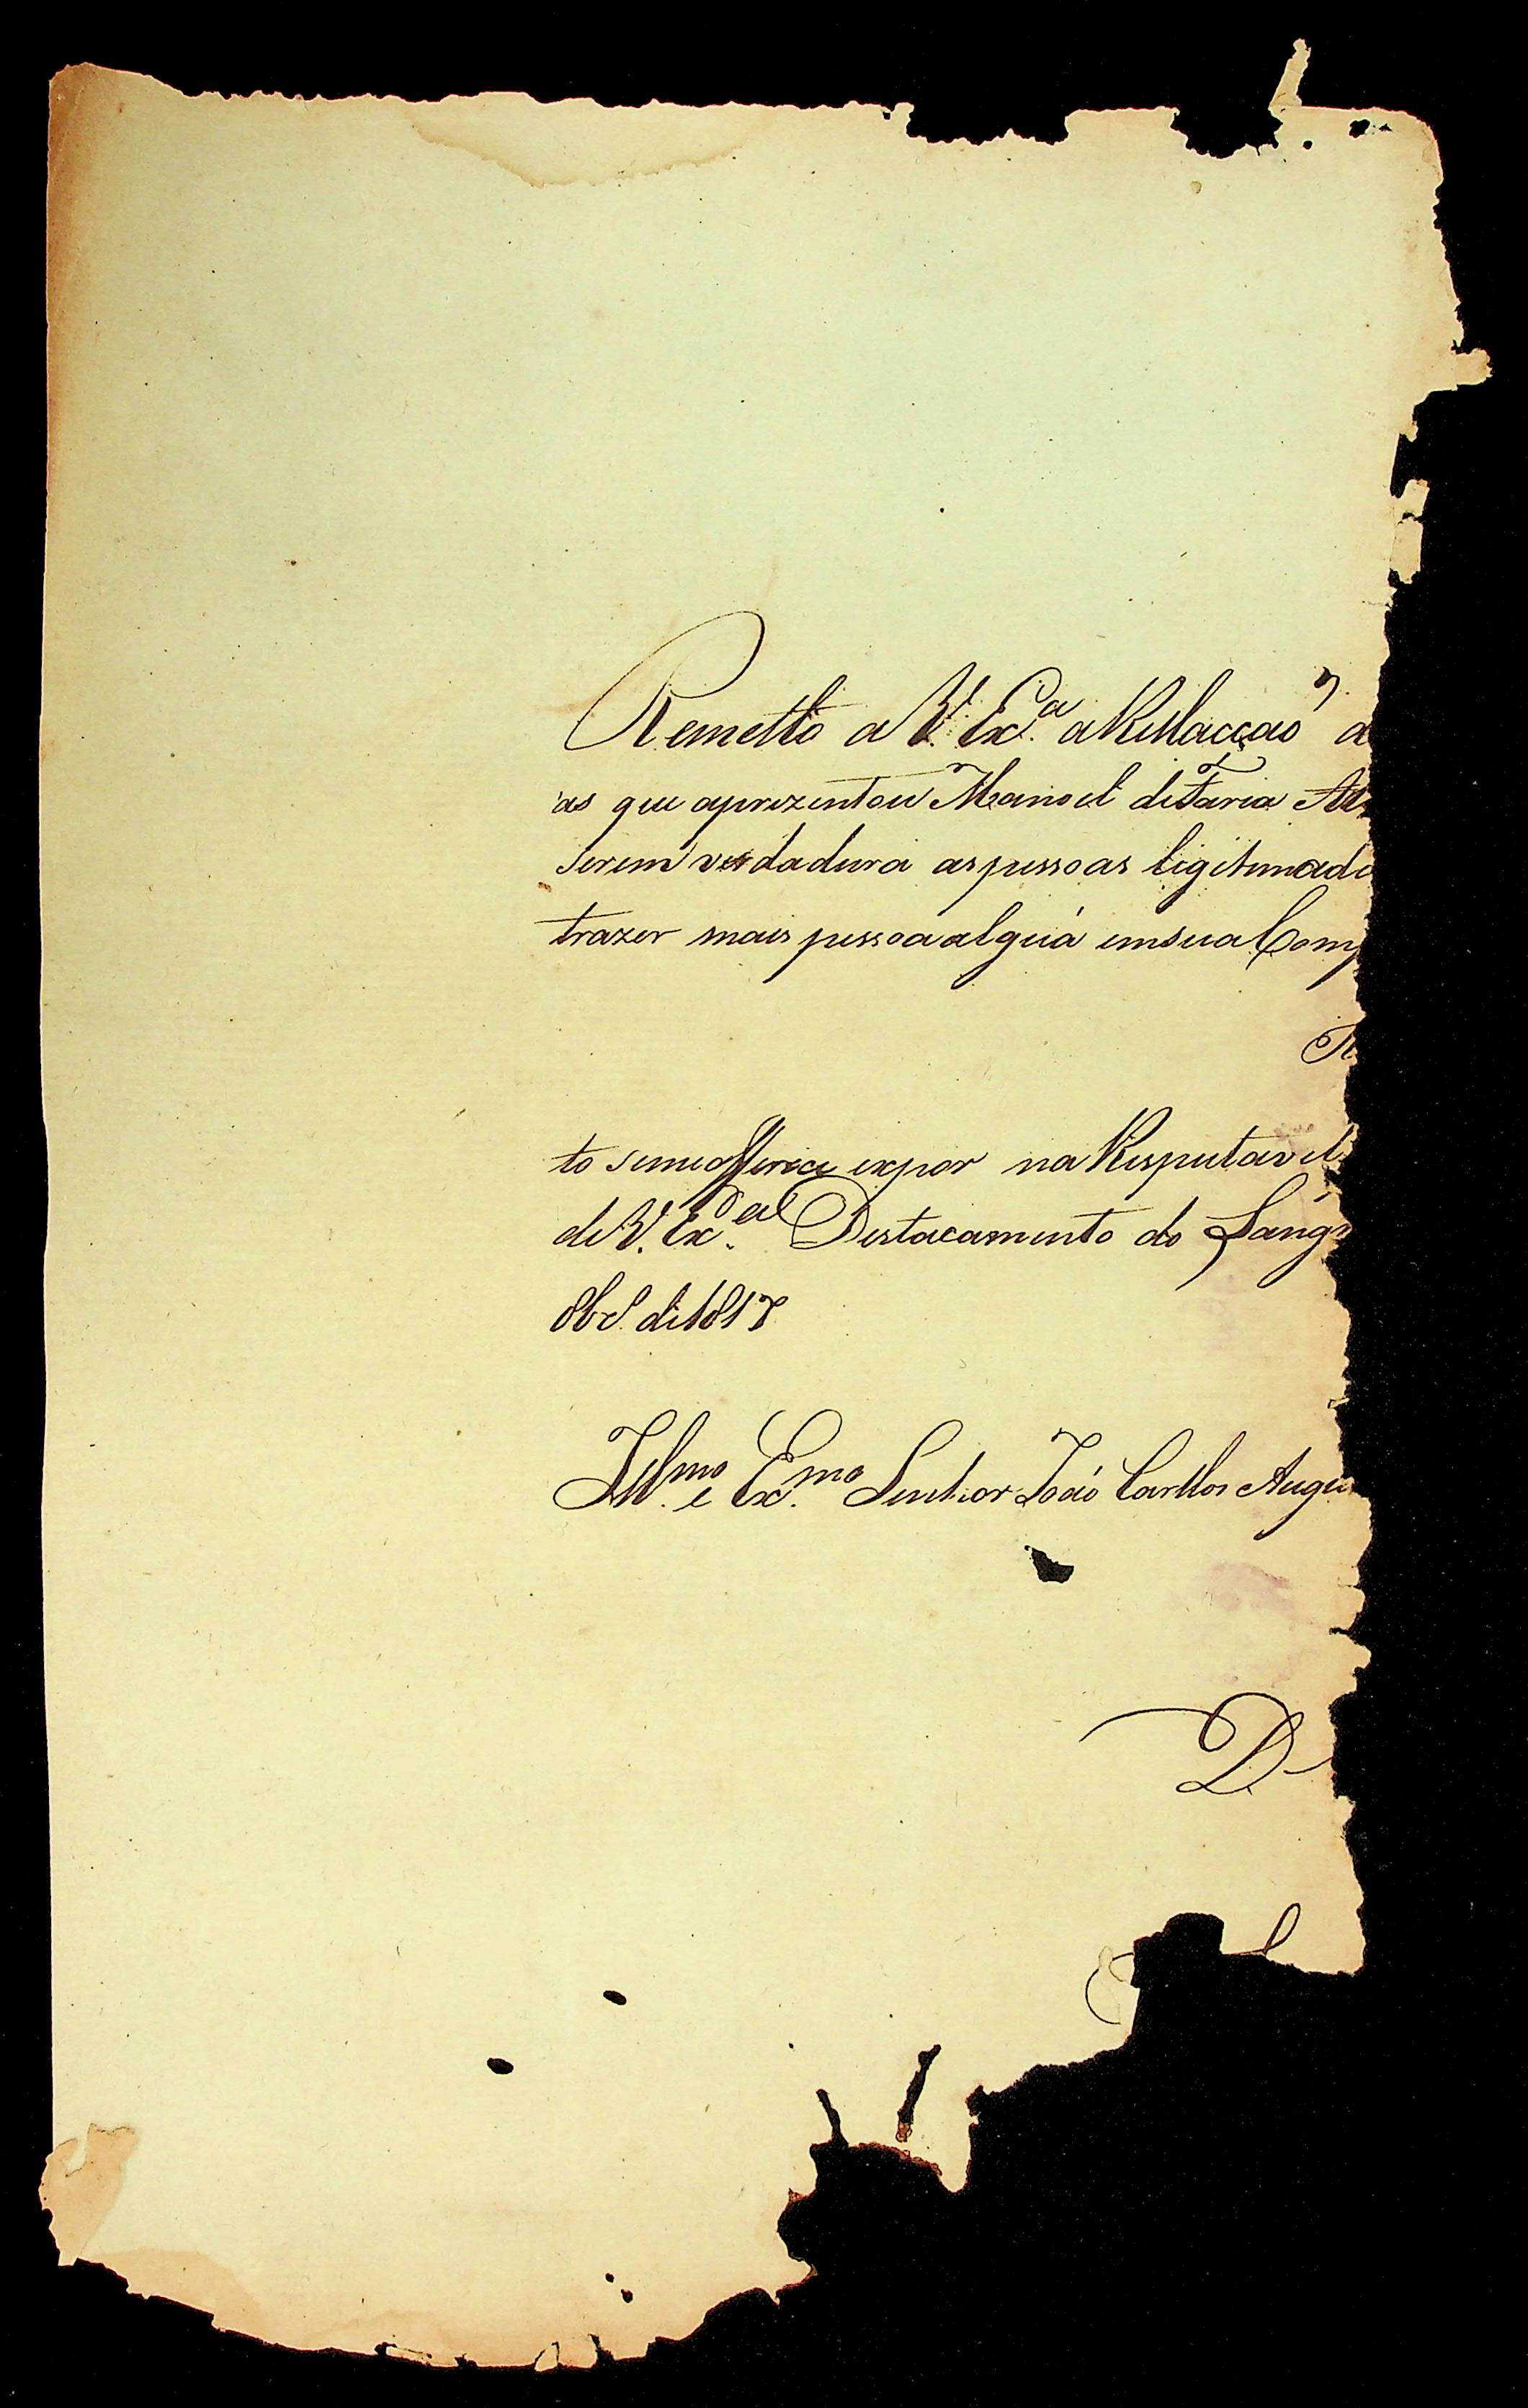 Remetto a V. Ex.ª a Rellacçaõ d
as que aprezentou Manoel de Faria
serem verdadura as pessoas legitimado
trazer mais pessoa algũa em sua Comp
R
to se me offerece expor na Respeitavel
de V. Ex.ª Destacamento do Sang
8br.º de 1817
Ill.mo e Ex.mo Senhor Joaõ Carllos Augu
D